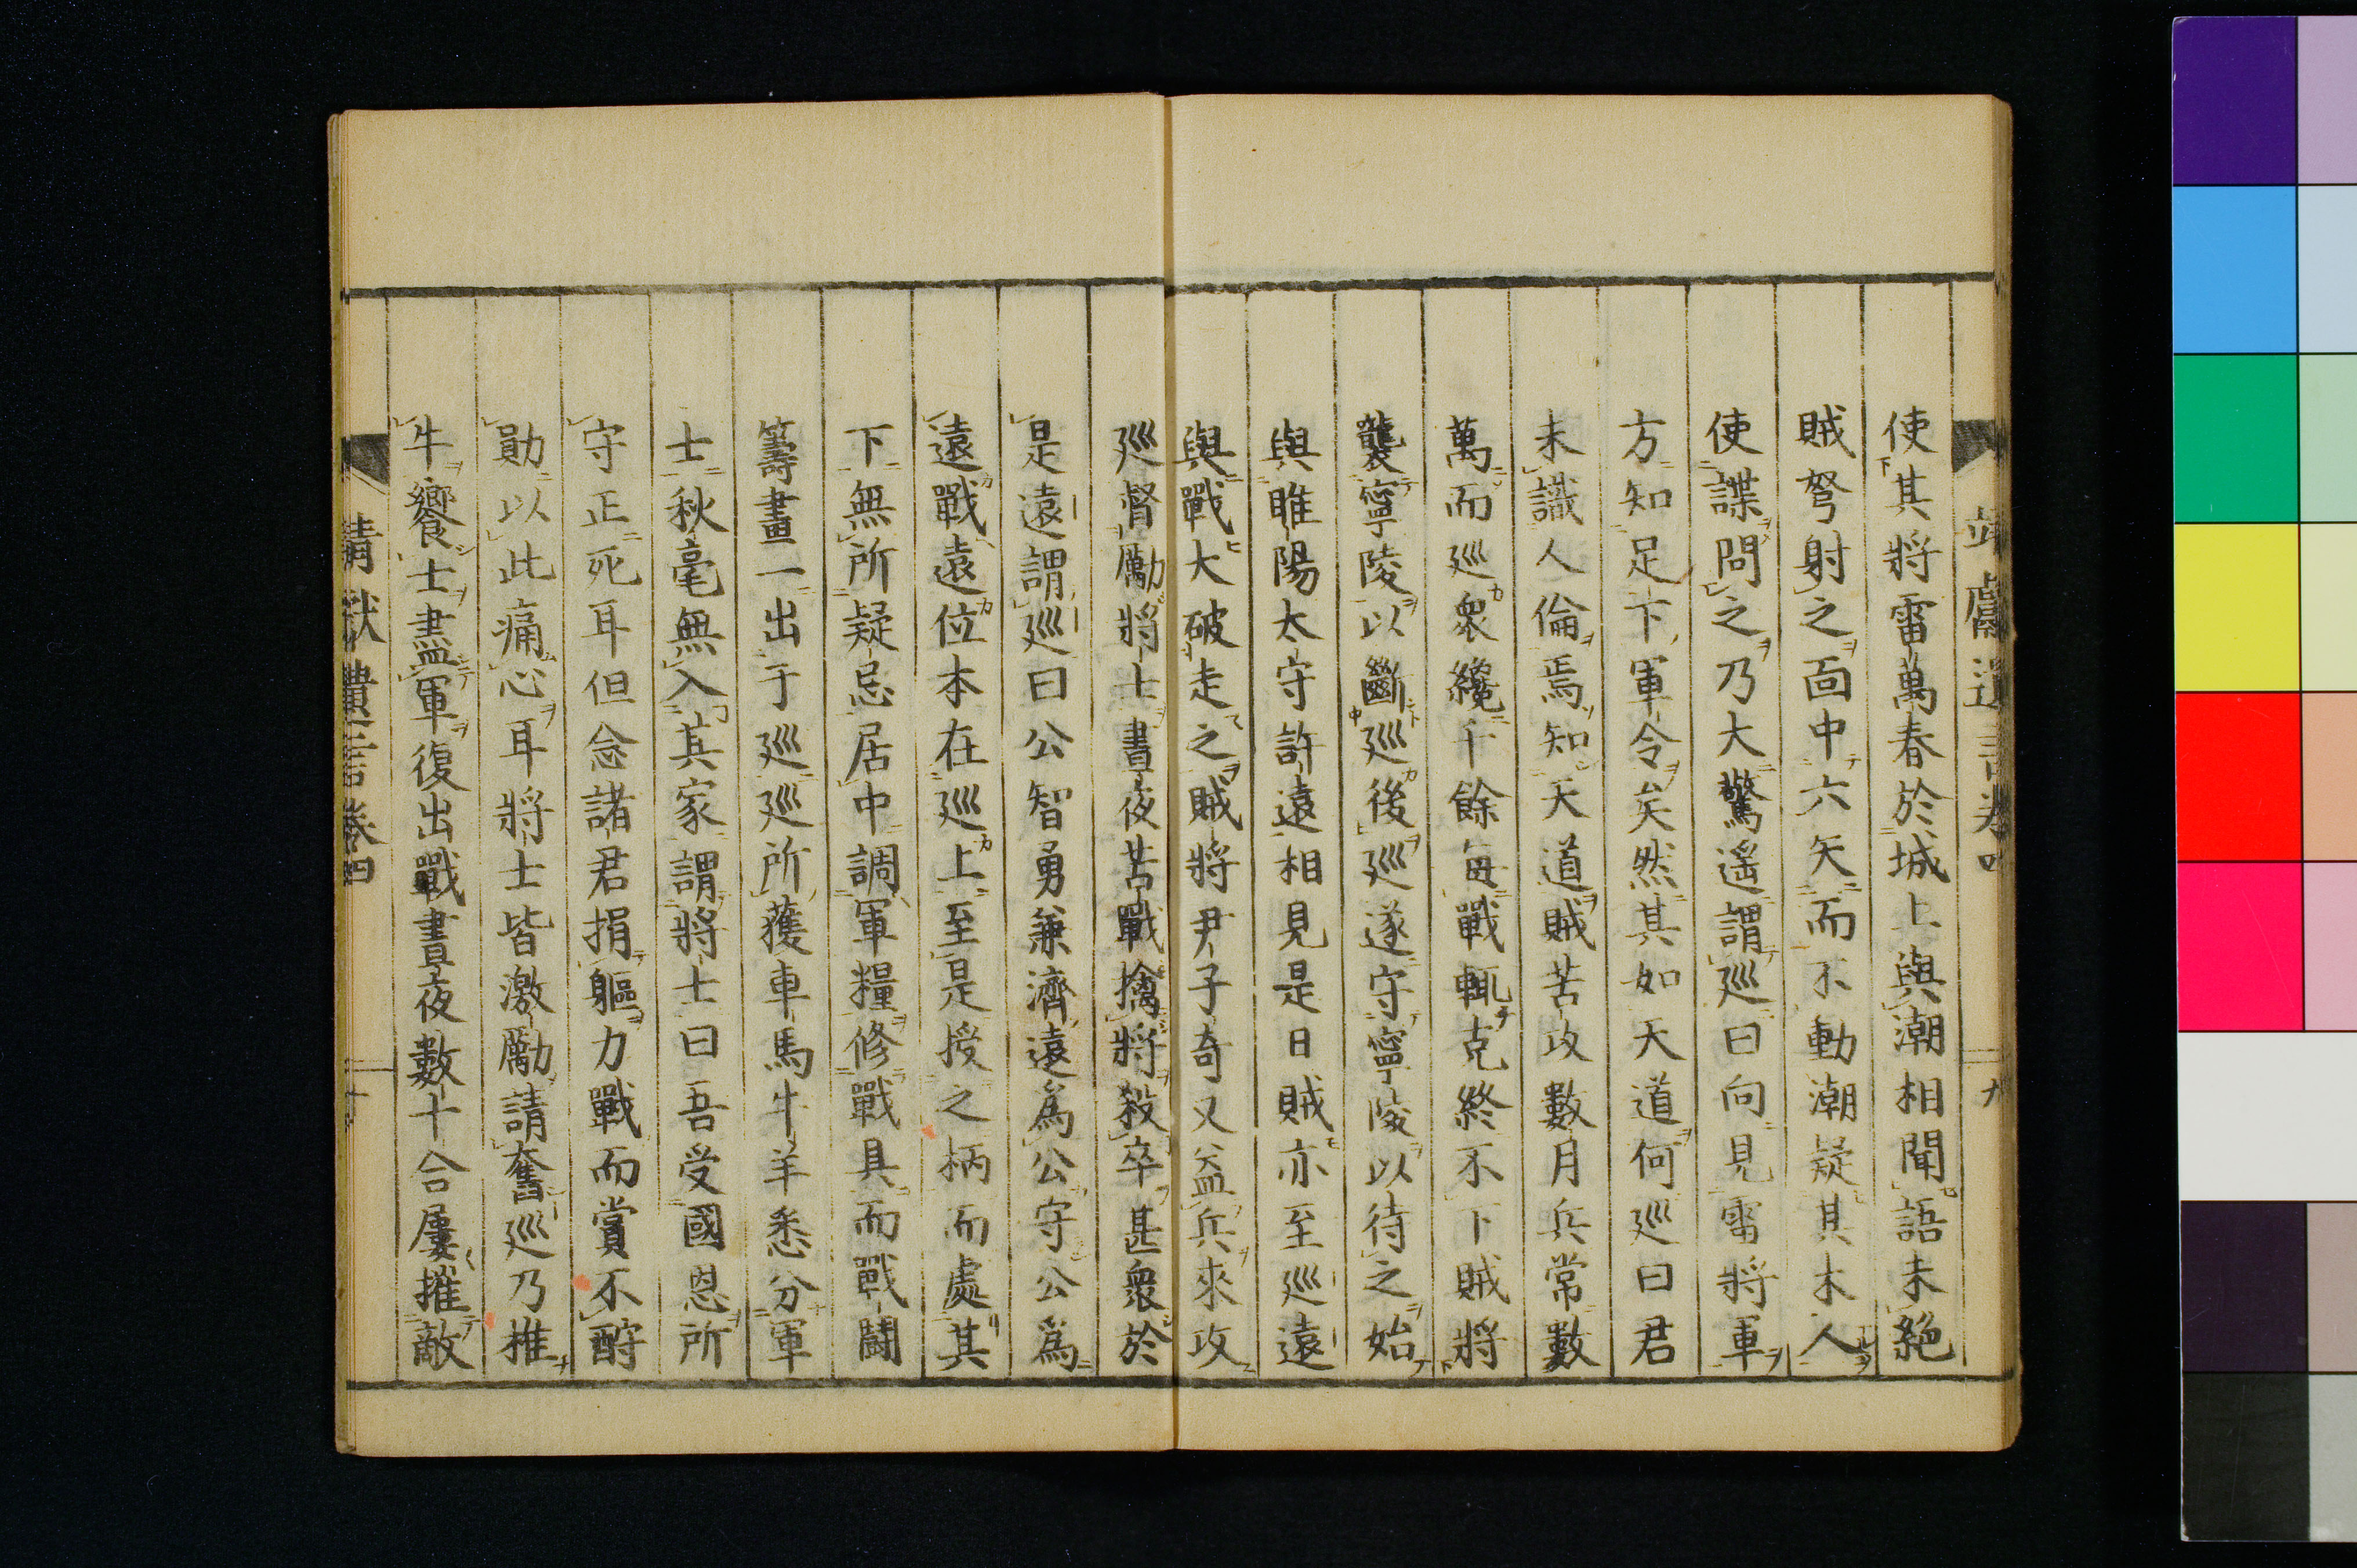 靖獻遺言卷四
九
使其將雷萬春於城上與潮相聞語未絕
賊弩射之面中六矢而不動潮疑其木人
使諜問之乃大驚遥謂巡曰向見雷將軍
方知足下軍令矣然其如天道何巡曰君
未識人倫焉知天道賊苦攻數月兵常數
萬而巡衆纔千餘每戰輒克終不下賊將
襲寧陵以斷巡後巡遂守寧陵以待之始
與睢陽太守許遠相見是日賊亦至巡遠
與戰大破走之賊將尹子奇又益兵來攻
巡督勵將士晝夜苦戰擒將殺卒甚衆於
是遠謂巡曰公智勇兼濟遠爲公守公爲
遠戰遠位本在巡上至是授之柄而處其
下無所疑忌居中調軍糧修戰具而戰鬪
籌畫一出于巡巡所獲車馬牛羊悉分軍
士秋毫無入其家謂將士曰吾受國恩所
守正死耳但念諸君捐軀力戰而賞不酧
勛以此痛心耳將士皆激勵請奮巡乃推
牛饗士盡軍復出戰晝夜數十合屢摧敵
靖献遺言卷四
十